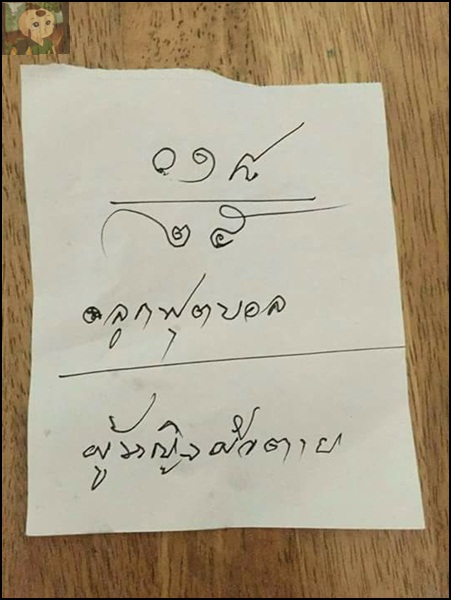 ๐๑๙
๒๕
ลูกฟุตบอล
ผู้หญิงผัวตาย